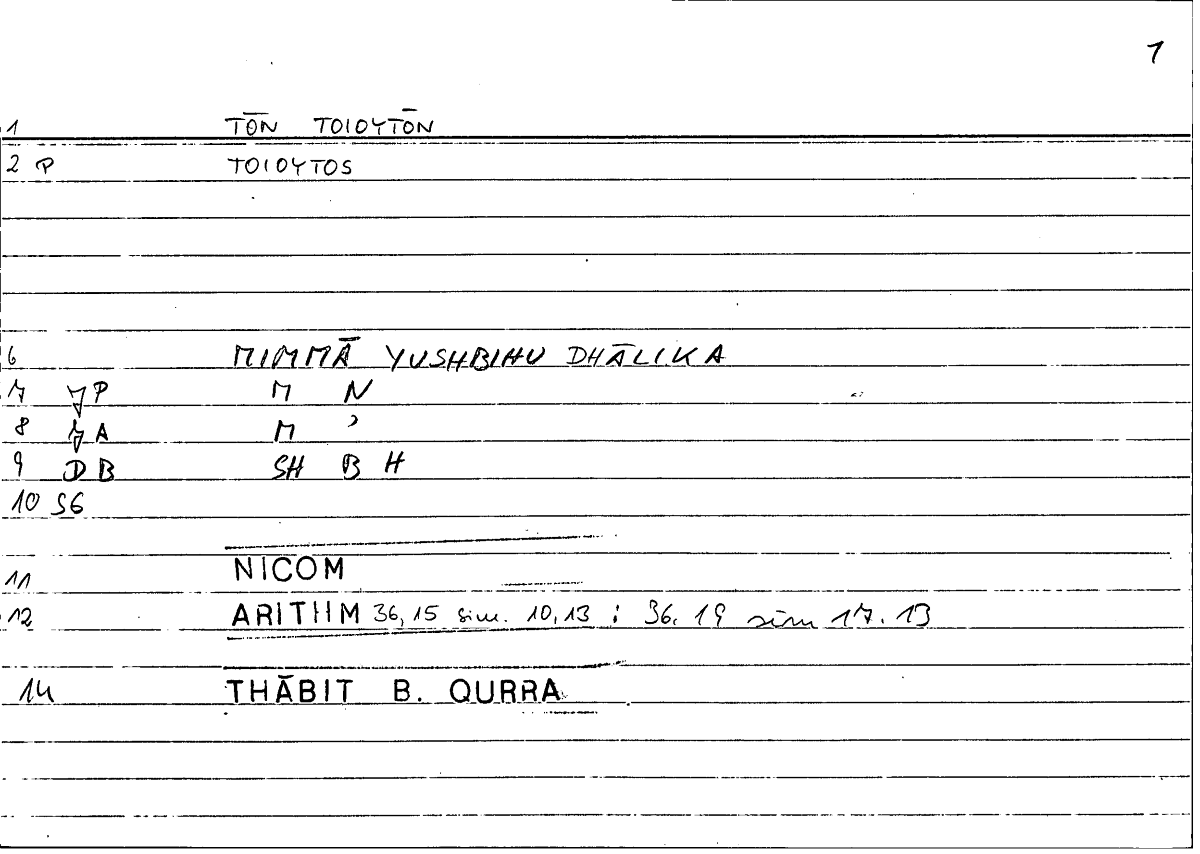 1
1 TŌN TOIOYTŌN
2 P TOIOYTOS
6 MIMMĀ YUSHBIHU DHĀLIKA
7 7P M N
8 7A M ʾ
9 DB SH B H
10 S6
11 NICOM
12 ARITHM 36,15 sim. 10,13 ; 36.19 sim 17.13
14 THĀBIT B. QURRA